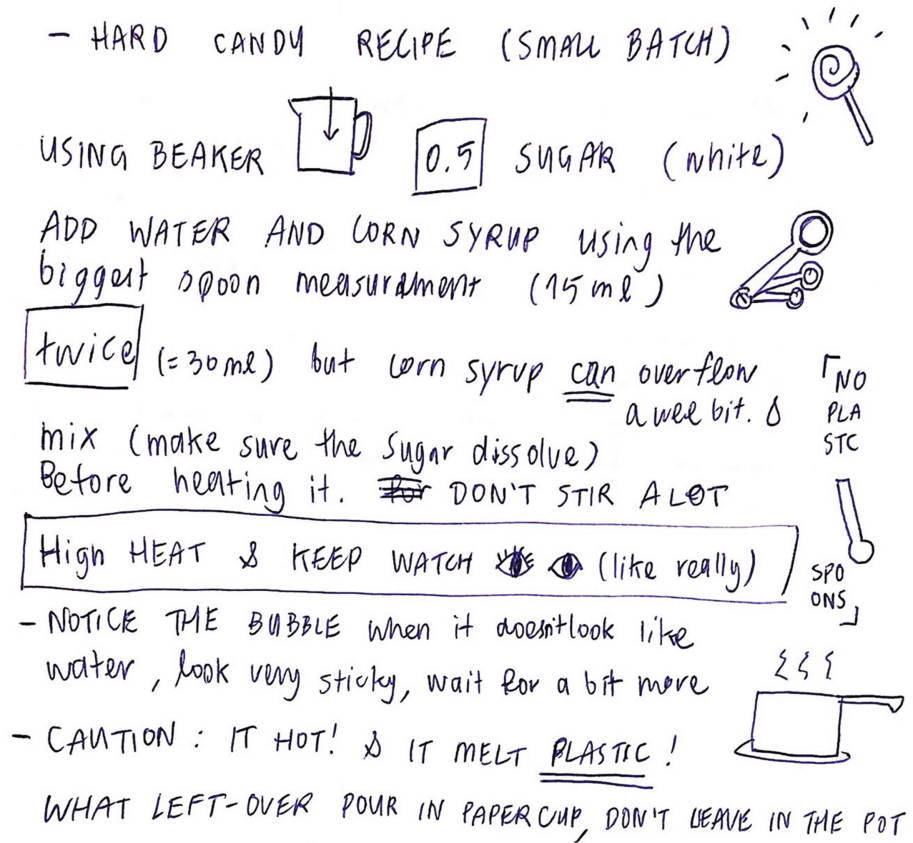 - HARD CANDY RECIPE (SMALL BATCH)
USING BEAKER 0.5 SUGAR (white)
ADD WATER AND CORN SYRUP using the
biggest spoon measurement (15 ml)
twice (=30 ml) but corn syrup can overflow
a wee bit. &
mix (make sure the Sugar dissolve)
Before heating it. for DON'T STIR A LOT
「NO
PLA
STC
SPO
ONS」
High HEAT & KEEP WATCH (like really)
- NOTICE THE BUBBLE when it doesn't look like
water, look very sticky, wait for a bit more
- CAUTION : IT HOT! & IT MELT PLASTIC!
WHAT LEFT-OVER POUR IN PAPER CUP, DON'T LEAVE IN THE POT